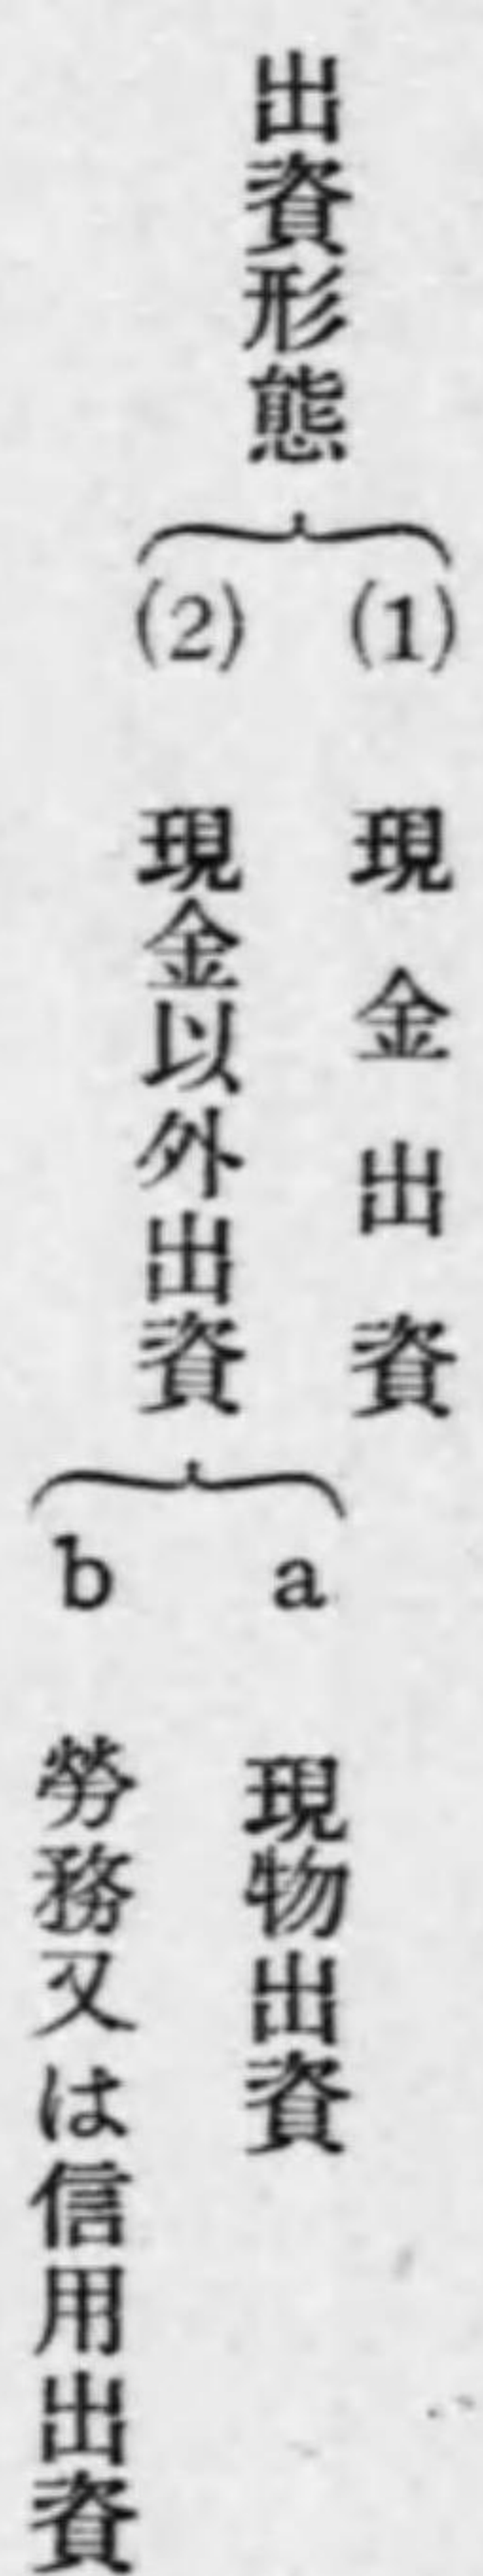 出資形態
(1) 現金出資
(2) 現金以外出資
a 現物出資
b 勞務又は信用出資